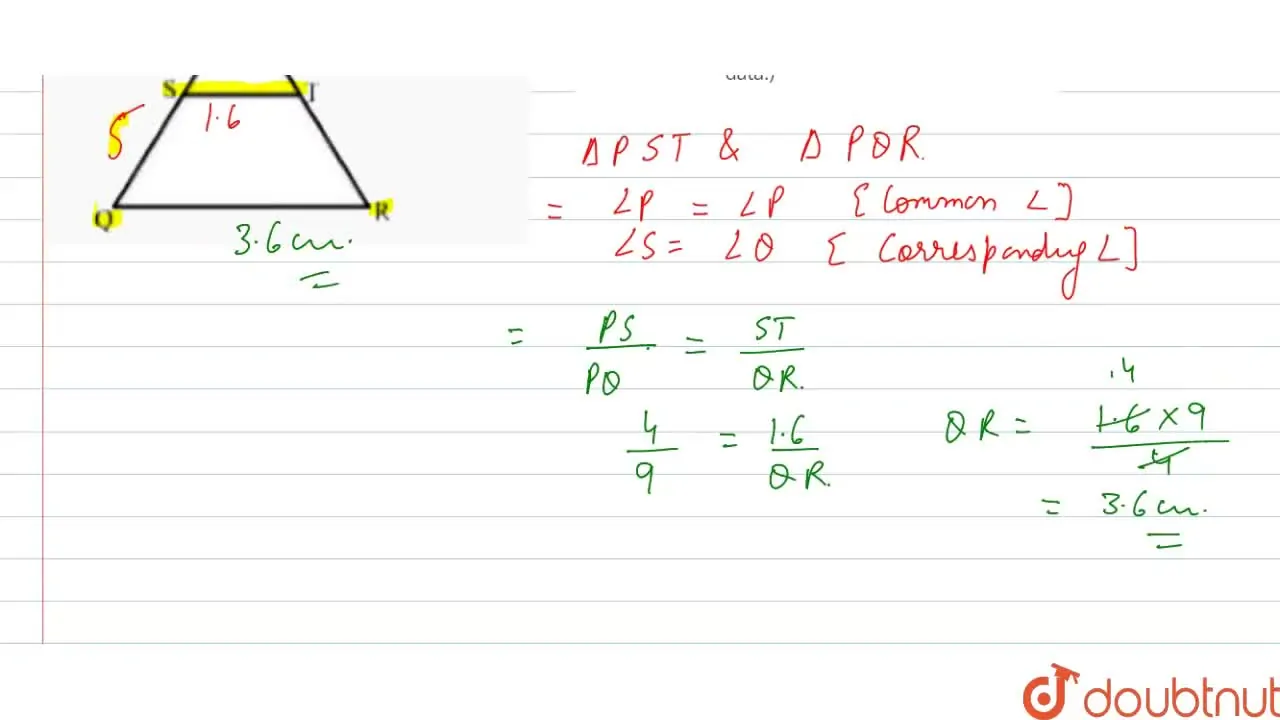 data.)
S T
1.6
5
Q R
3.6 cm.
Δ PST & Δ PQR.
= ∠P = ∠P [Common ∠]
∠S = ∠Q [Corresponding ∠]
= PS/PQ = ST/QR.
4/9 = 1.6/QR.
.4
QR = 1.6 × 9 / 4
= 3.6 cm.
doubtnut